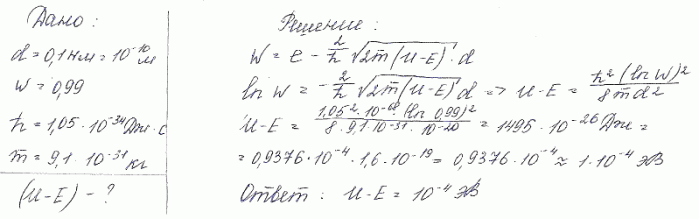 Дано:
d = 0,1 нм = 10^-10 м
W = 0,99
ħ = 1,05 · 10^-34 Дж · с
m = 9,1 · 10^-31 кг
(U-E) - ?
Решение:
W = e - 2/ħ √2m(U-E) · d
ln W = - 2/ħ √2m(U-E) d => U-E = ħ^2 (ln W)^2 / 8md^2
U-E = 1,05^2 · 10^-68 (ln 0,99)^2 / 8 · 9,1 · 10^-31 · 10^-20 = 1495 · 10^-26 Дж =
= 0,9376 · 10^-4 · 1,6 · 10^-19 = 0,9376 · 10^-4 ≈ 1 · 10^-4 эВ
Ответ: U-E = 10^-4 эВ